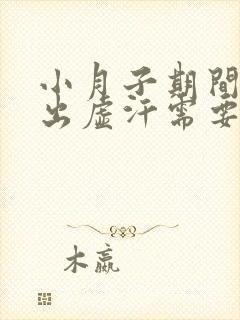 小月子期間
出虛汗需要
木嬴